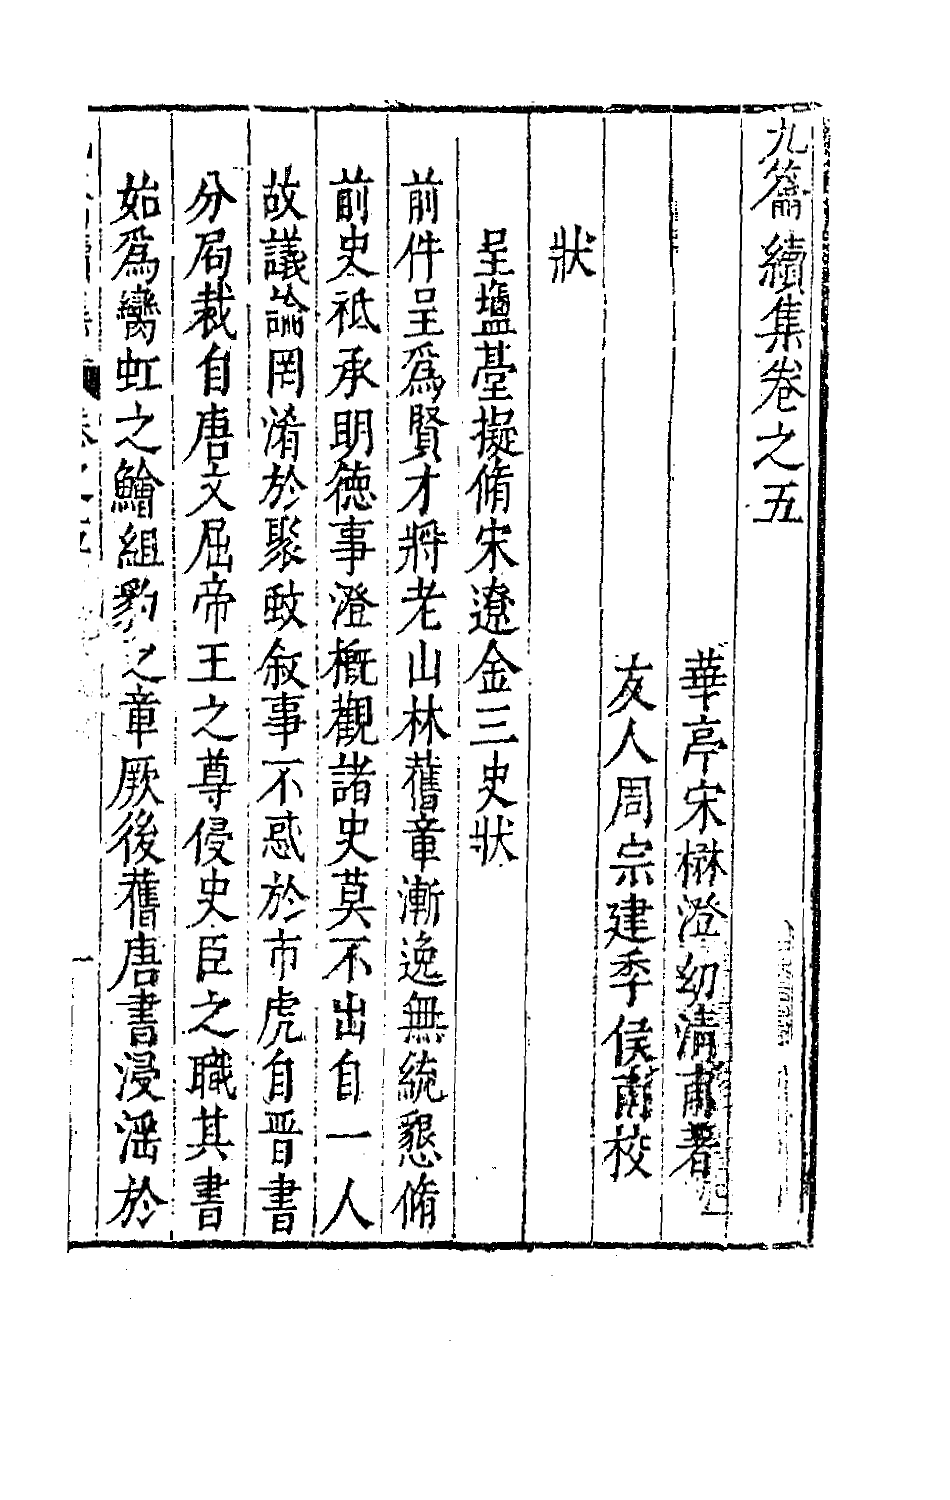 九籥續集卷之五
華亭宋楙澄幼清甫著
友人周宗建季侯甫校
狀
呈鹽臺擬脩宋遼金三史狀
前件呈爲賢才將老山林舊章漸逸無統懇脩
前史祗承明德事澄概觀諸史莫不出自一人
故議論罔淆於聚歧叙事不惑於市虎自晋書
分局裁自唐文屈帝王之尊侵史臣之職其書
始爲臠虹之鱠組豹之章厥後舊唐書浸滛於